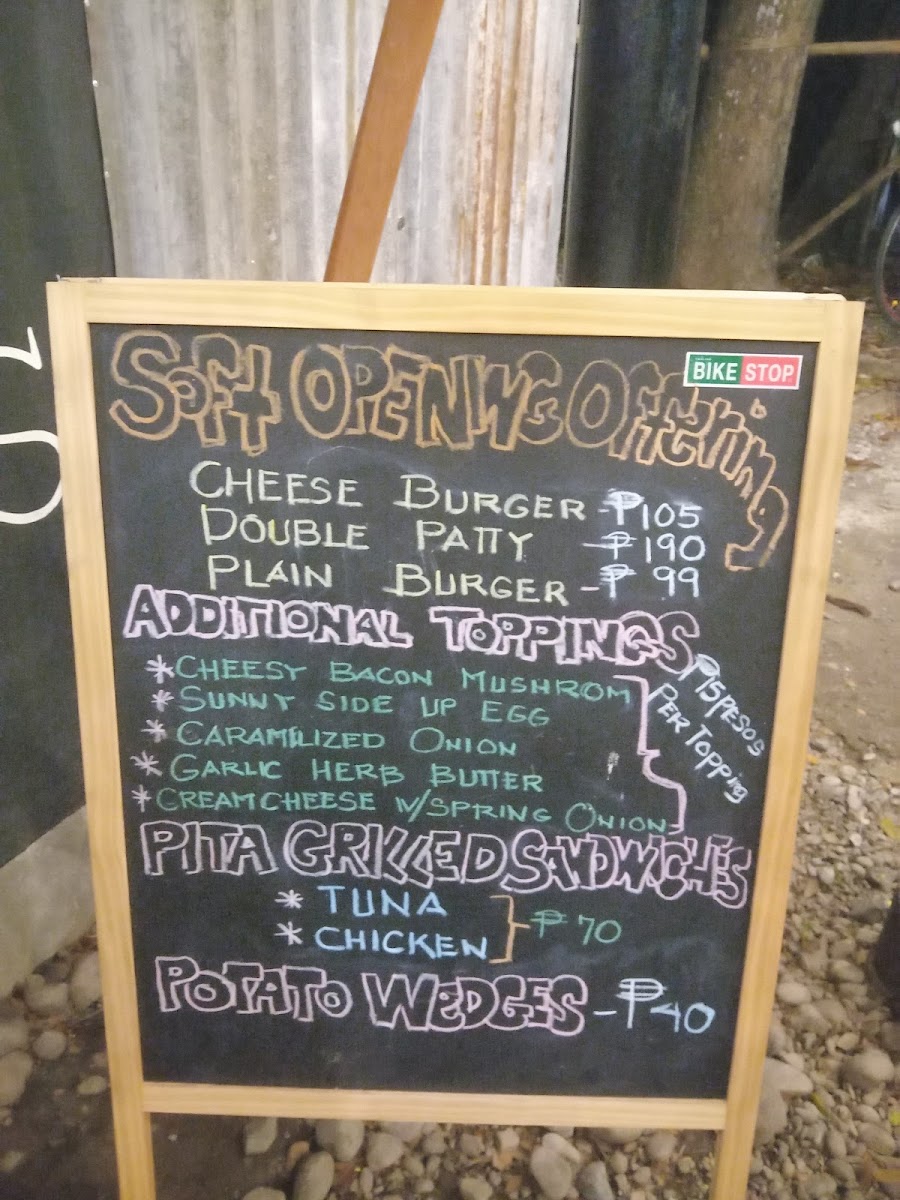 Soft OPENING Offering
BIKE STOP
CHEESE BURGER - ₱105
DOUBLE PATTY - ₱ 190
PLAIN BURGER - ₱ 99
ADDITIONAL TOPPINGS
* CHEESY BACON MUSHROM
* SUNNY SIDE UP EGG
* CARAMILIZED ONION
* GARLIC HERB BUTTER
* CREAMCHEESE W/SPRING ONION
₱15 PESOS
PER TOPPING
PITA GRILLED SANDWICHES
* TUNA
* CHICKEN
₱ 70
POTATO WEDGES - ₱40